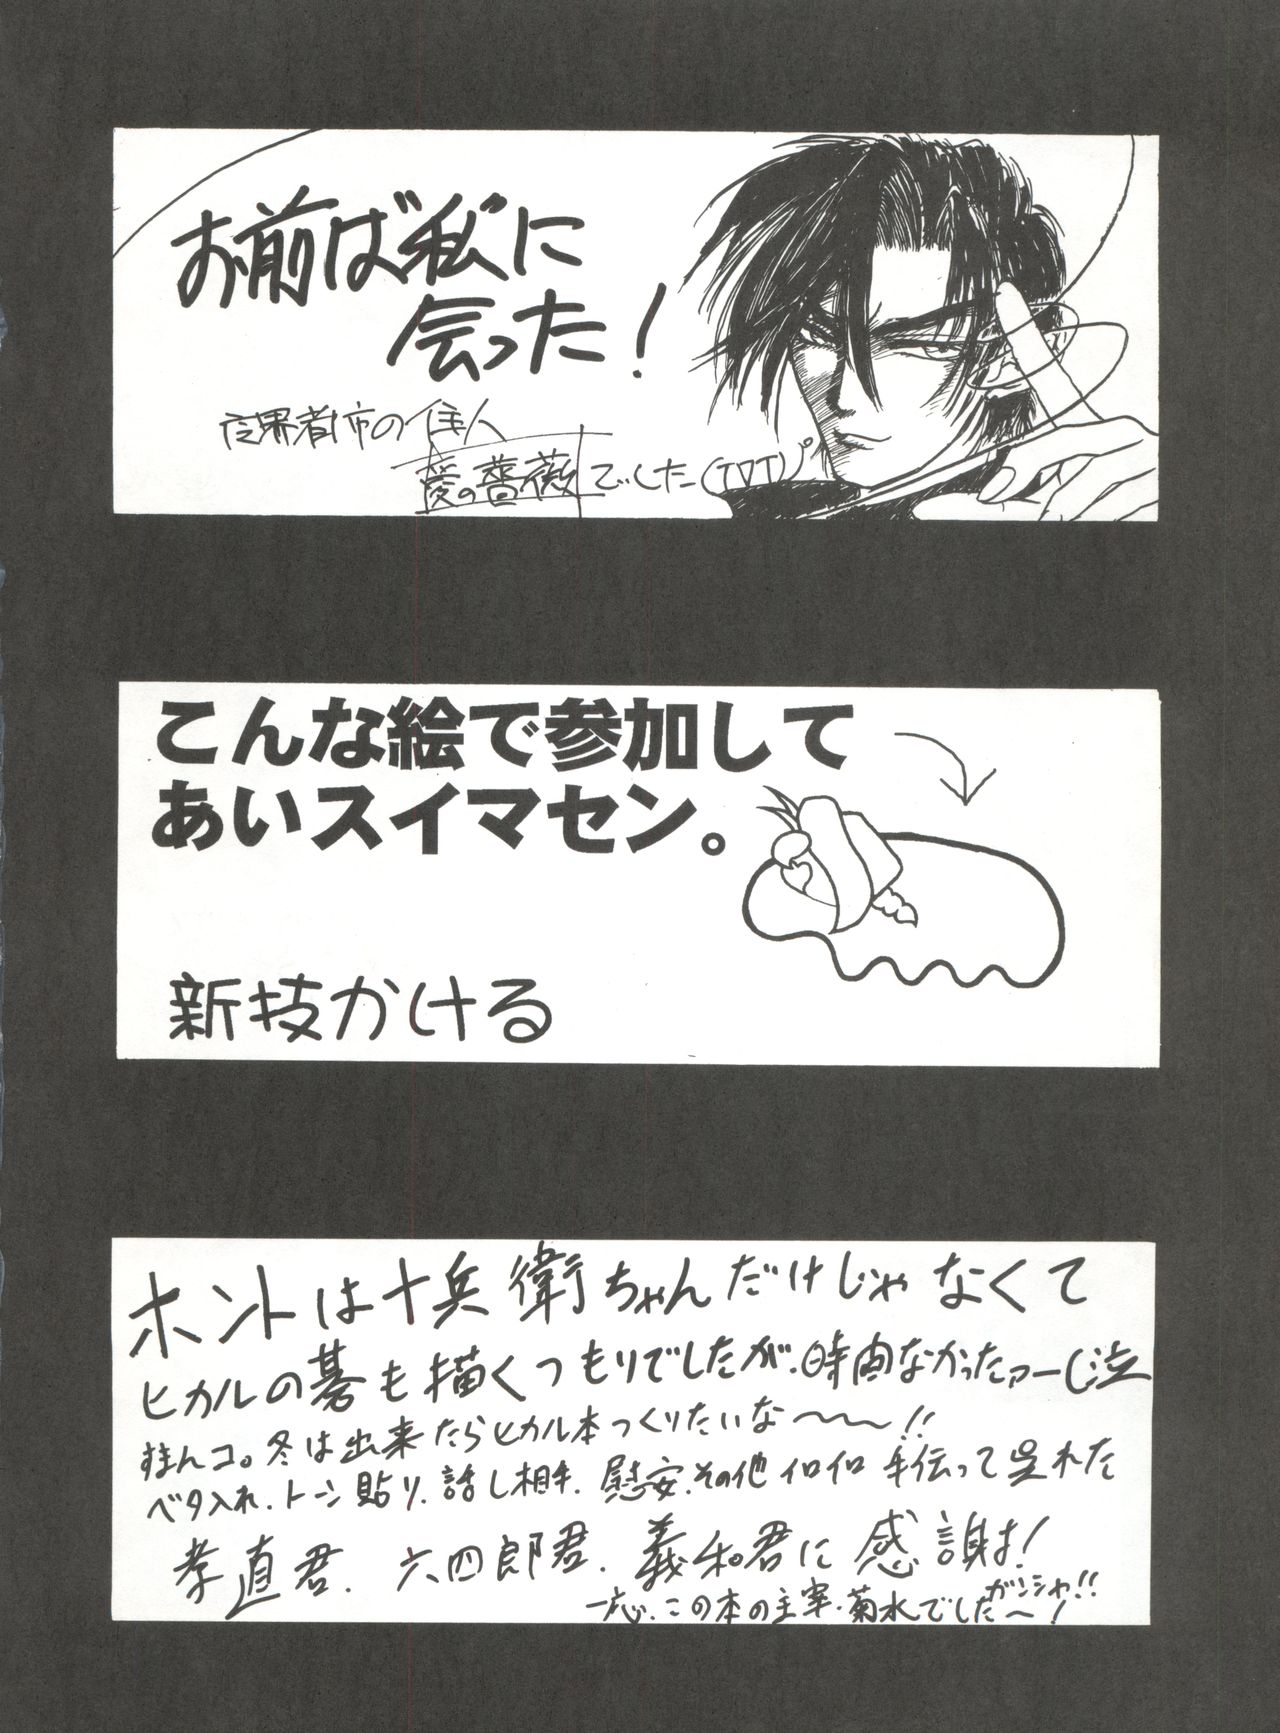 お前は私に
会った！
境界都市の住人
愛の薔薇でした(TDT)
こんな絵で参加して
あいスイマセン。
新技かける
ホントは十兵衛ちゃんだけじゃなくて
ヒカルの碁も描くつもりでしたが、時間なかったァー(泣
すまんコ。冬は出来たらヒカル本つくりたいな〜〜!!
ベタ入れ、トーン貼り、話し相手、慰安、その他イロイロ手伝って呉れた
孝直君、六四郎君、義和君に感謝！
ガンシャ!!
一応、この本の主宰・菊水でした〜！